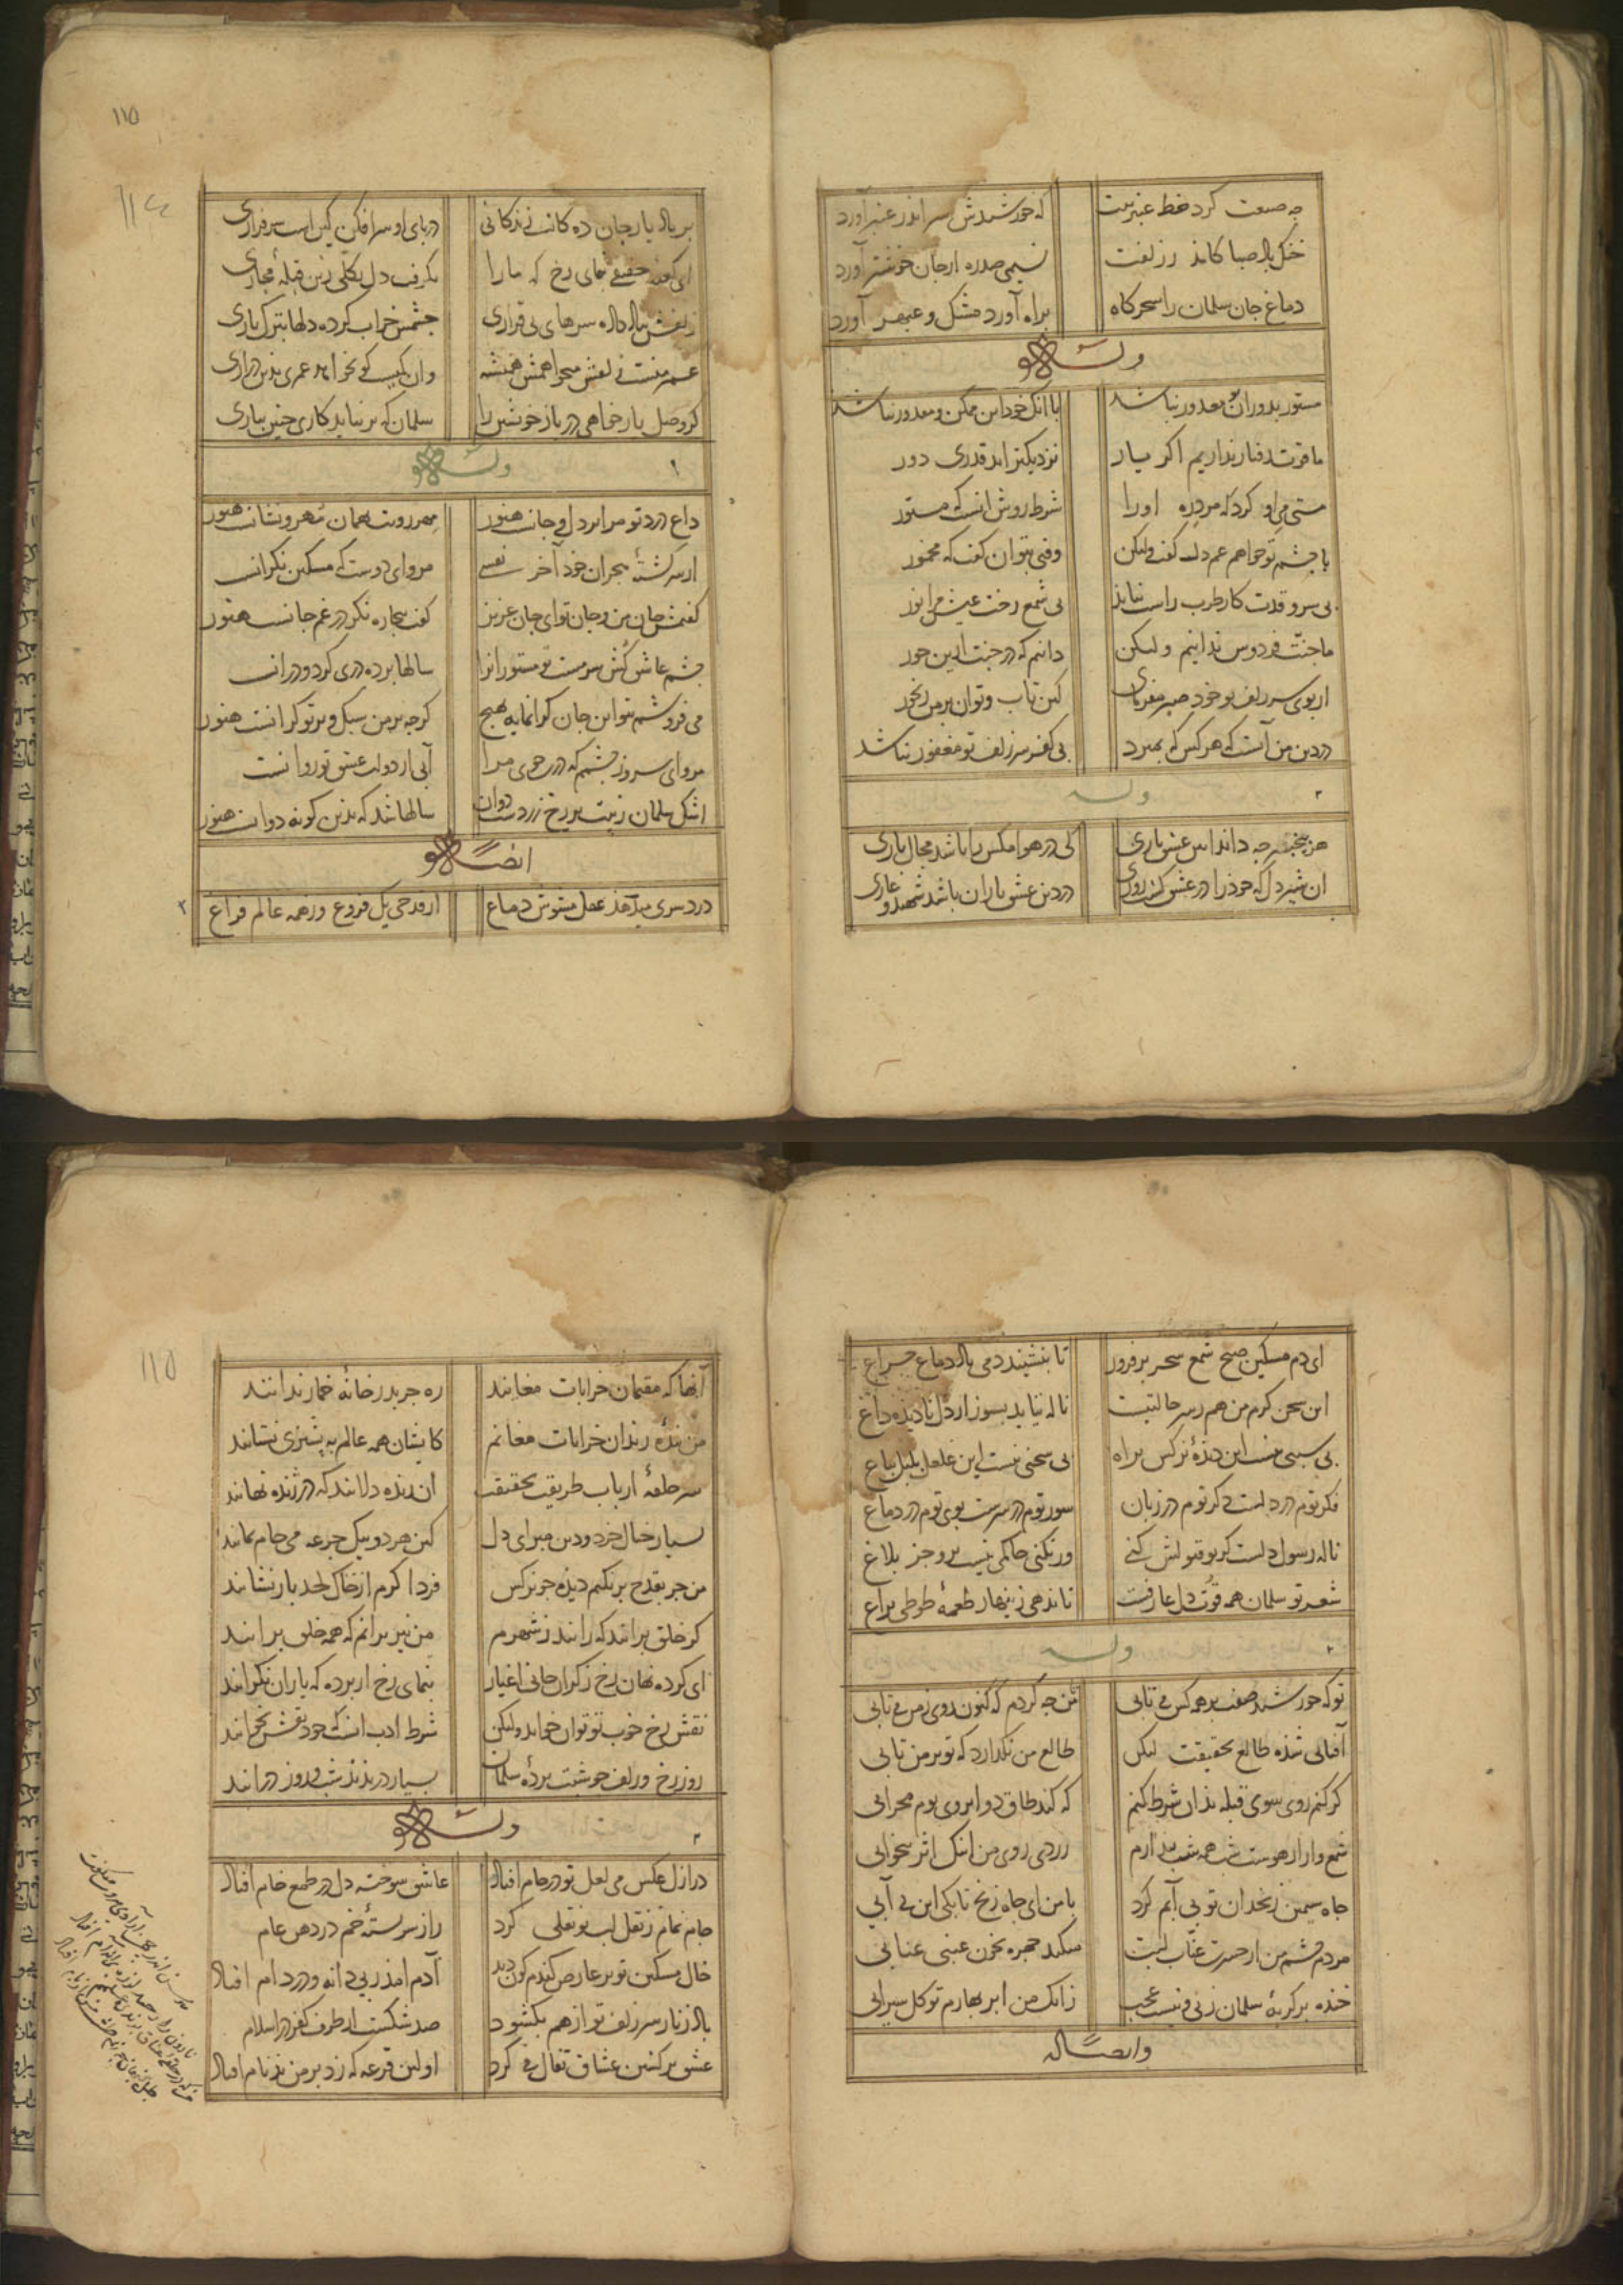 چه صنعت کرد خط عنبرینت که خورشیدش سر اندر عنبر آورد
خنک باد صبا کاند ز زلفت نسیمی صد ره از جان خوشتر آورد
دماغ جان سلمان را سحرکاه براه آورد مشک و عنبر آورد
وله
مستور بدوران معذور نباشد با آنک خود این ممکن و مقدور نباشد
ما قوت رفتار نداریم اکر یار نزدیکتر آید قدری دور
مستی می او کرد که مرد ره او را شرط روش آنست که مستور
با چشم تو خواهم غم دل کفت ولیکن وقتی بتوان کفت که مخمور
بی سرو قدت کار طرب راست نیاید بی شمع رخت عیش مرا نور
ما جنت فردوس ندانیم ولیکن دانیم که در جنت ازین حور
از بوی سر زلف تو خود صبر مفرمای کین تاب و توان بر من رنجور
در دین من آنست که هر کس که بمیرد بی کفر سر زلف تو مغفور نباشد
وله
هر چه داند این عشق بازی کی در هوا مکس را باشد مجال بازی
ان شیر دل که خود را در عشق کشت روزی در دین عشق بازان باشد شهید و غازی
بر باد یار جان ده کانست زندکانی در پای او سر افکن کین است سرفرازی
ای حقیقی بنمای رخ که ما را بکرفت دل بکلی زین قبله مجازی
زلفش بباد داده سرهای بی قراری چشمش خراب کرده دلها بترک تازی
عمر منست زلفش میخواهمش همیشه وان کیست کو نخواهد عمری بدین درازی
کر وصل یار خواهی در باز خویشتن را سلمان که بر نیاید کاری چنین ببازی
وله
داغ درد تو مرا بر دل و جانست هنوز مهر رویت همان مهر و نشانست هنوز
از سر کشته هجران خود آخر نفسی مرو ای دوست که مسکین نکرانست
کفتمش جان من و جان تو ای جان عزیز کفت بیچاره نکر در غم جانست هنوز
چشم عاشق کش سرمست تو مستورانرا سالها پرده دری کرد و در آنست
می فروشم بتو این جان کرانمایه بهیچ کرچه بر من سبک و بر تو کرانست هنوز
مرو ای سرو ز چشمم که در جوی مرا آبی از دولت عشق تو روانست
اشک سلمان ز پیت بر رخ زردست دوان سالها شد که بدین کونه دوانست هنوز
ایضا له
درد سری میدهد عقل مشوش دماغ از قدح یک فروغ وز همه عالم فراغ
ای دم مسکین صبح شمع سحر بر فروز تا بنشیند دمی باد دماغ چراغ
این سخن کرم من هم ز سر حالتیست ناله نیاید بسوز از دل نادیده داغ
بی سببی نیست این دیده نرکس براه بی سخنی نیست این غلغل بلبل بباغ
فکر توم در دلست ذکر توم در زبان سور توم در سرست بوی توم در دماغ
ناله رسول دلست کر تو قبولش کنی ور نکنی حاکمی نیست برو جز بلاغ
شعر تو سلمان همه قوت دل عارفست تا ندهی زینهار طعمه طوطی بزاغ
وله
تو که خورشید صفت بر همه کس می تابی من چه کردم که کنون روی ز من می تابی
آفتابی شده طالع بحقیقت لیکن طالع من نکذارد که تو بر من تابی
کر کنم روی بسوی قبله بدان شرط کنم که کند طاق دو ابروی توم محرابی
شمع وار از هوست شب همه شب بیدارم زردی روی من اینک اثر بیخوابی
چاه سیمین زنخدان تو بی آبم کرد با من ای چاه زنخ تا بکی این بی آبی
مردم چشم من از حسرت عناب لبت میکند چهره بخون عنبی عنابی
خنده بر کریه سلمان زنی و نیست عجب زانک من ابر بهارم تو کل سیرابی
و ایضا له
آنها که مقیمان خرابات مغانند ره جز بدر خانه خمار ندانند
من بنده رندان خرابات مغانم کایشان همه عالم به پشیزی نستانند
سر حلقه ارباب طریقت بحقیقت ان زنده دلانند که در ژنده نهانند
بسیار خیال خرد و دین مبر ای دل کین هر دو بیک جرعه می خام نمانند
من جز بقدح بر نکنم دیده چو نرکس فردا کرم از خاک لحد باز نشانند
کر خلق برانند که رانند ز شهرم من نیز برانم که همه خلق برانند
ای کرده نهان رخ ز کران جانی اغیار بنمای رخ از پرده که یاران نکرانند
نقش رخ خوب تو توان خواند ولیکن شرط ادب آنست که خود نقش نخوانند
روز رخ و زلف چو شبت پرده سلمان بسیار دریدند شب و روز درانند
وله
در ازل عکس می لعل تو در جام افتاد عاشق سوخته دل در طمع خام افتاد
جام نمام ز نقل لب تو نقلی کرد راز سربسته خم در دهن عام
خال مسکین تو بر عارض کندم کون دید آدم آمد ز پی دانه و در دام افتاد
باد زنار سر زلف تو از هم بکشود صد شکست از طرف کفر در اسلام
عشق بر کشتن عشاق تفال می کرد اولین قرعه که زد بر من بدنام افتاد
۱۱۵
۱۱۴
۱۱۵